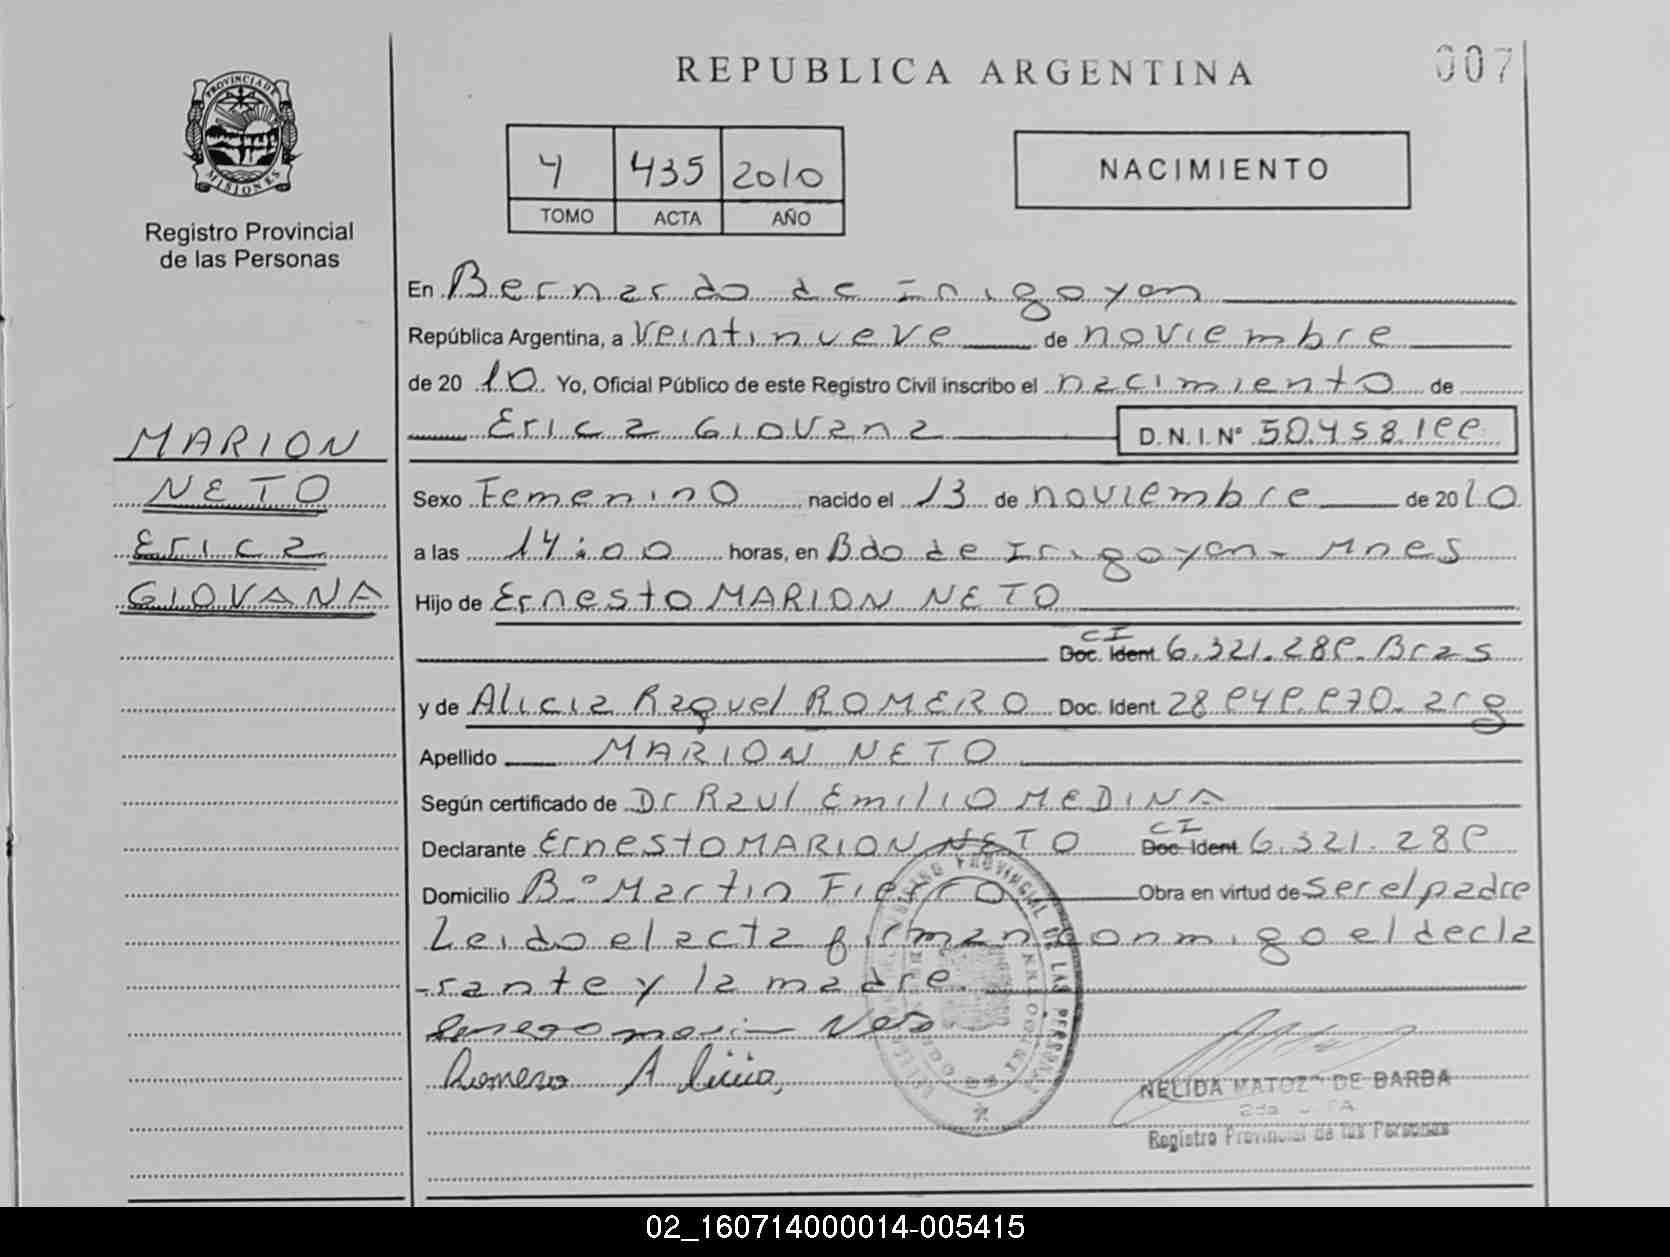 REPUBLICA ARGENTINA
007
PROVINCIA DE
MISIONES
Registro Provincial
de las Personas
4 435 2010
TOMO ACTA AÑO
NACIMIENTO
En Bernardo de Irigoyen
República Argentina, a Veintinueve de noviembre
de 20 10 Yo, Oficial Público de este Registro Civil inscribo el nacimiento de
Erica Giovana D.N.I.Nº 50.458.199
MARION
NETO
Erica
GIOVANA
Sexo Femenino nacido el 13 de noviembre de 2010
a las 14:00 horas, en Bdo de Irigoyen - Mnes
Hijo de Ernesto MARION NETO
CI
Doc. Ident. 6.321.289. Bras
y de Alicia Raquel ROMERO Doc. Ident. 28.949.970. arg
Apellido MARION NETO
Según certificado de Dr Raul Emilio MEDINA
CI
Declarante Ernesto MARION NETO Doc. Ident. 6.321.289
Domicilio B.º Martin Fierro Obra en virtud de Ser el padre
Leido el acta firman conmigo el decla
-rante y la madre.
Romero Alicia
NELIDA MATOZO DE BARBA
Registro Provincial de las Personas
02_160714000014-005415